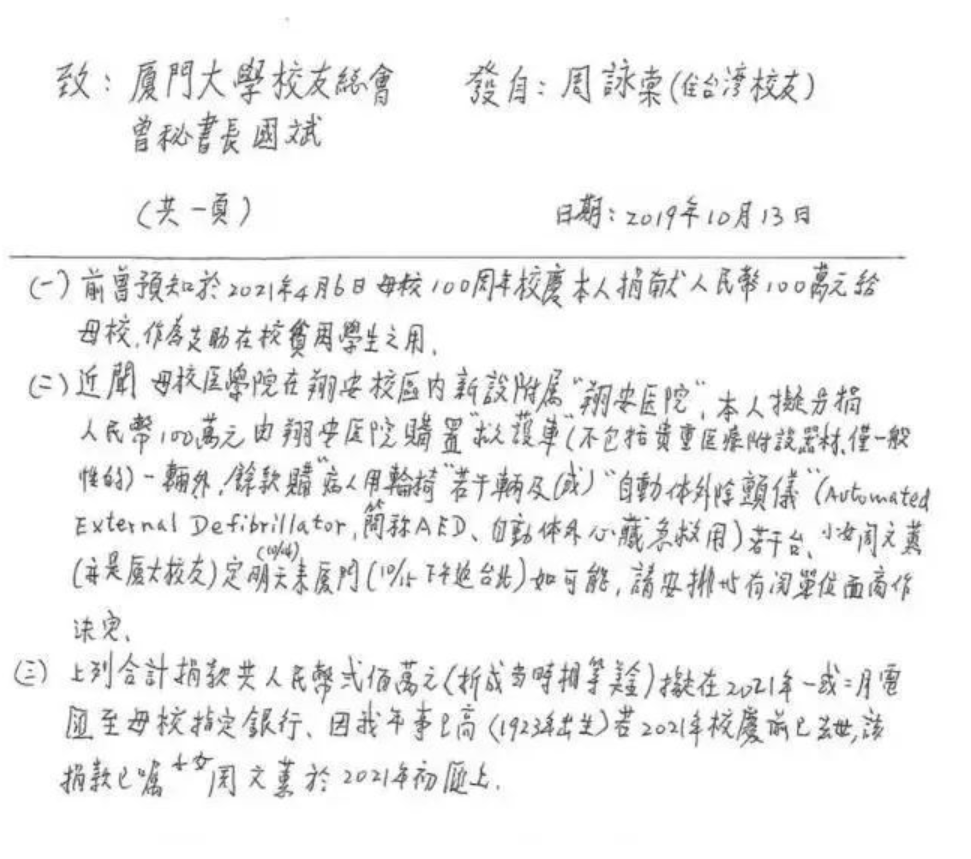 致：厦門大學校友總會 發自：周詠棠(住台湾校友)
曾秘書長國斌
(共一頁) 日期：2019年10月13日
(一)前曾預知於2021年4月6日母校100周年校慶本人捐献人民幣100萬元給
母校,作為支助在校貧困學生之用,
(二)近聞 母校医學院在翔安校區内新設附属"翔安医院",本人擬另捐
人民幣100萬元由翔安医院購置"救護車"(不包括貴重医療附設器材,僅一般
性的)一輛外,餘款購"病人用輪椅"若干輛及(或)"自動体外除顫儀"(Automated
External Defibrillator,簡称AED、自動体外心臟急救用)若干台、小女周文蕙
(亦是厦大校友)定明天(10/14)来厦門(10/15下午返台北)如可能,請安排与有関單位面商作
决定、
(三)上列合計捐款共人民幣弍佰萬元(折成当時相等美金)擬在2021年一或二月電
匯至母校指定銀行、因我年事已高(1923年出生)若2021年校慶前已去世,該
捐款已嘱小女周文蕙於2021年初匯上.